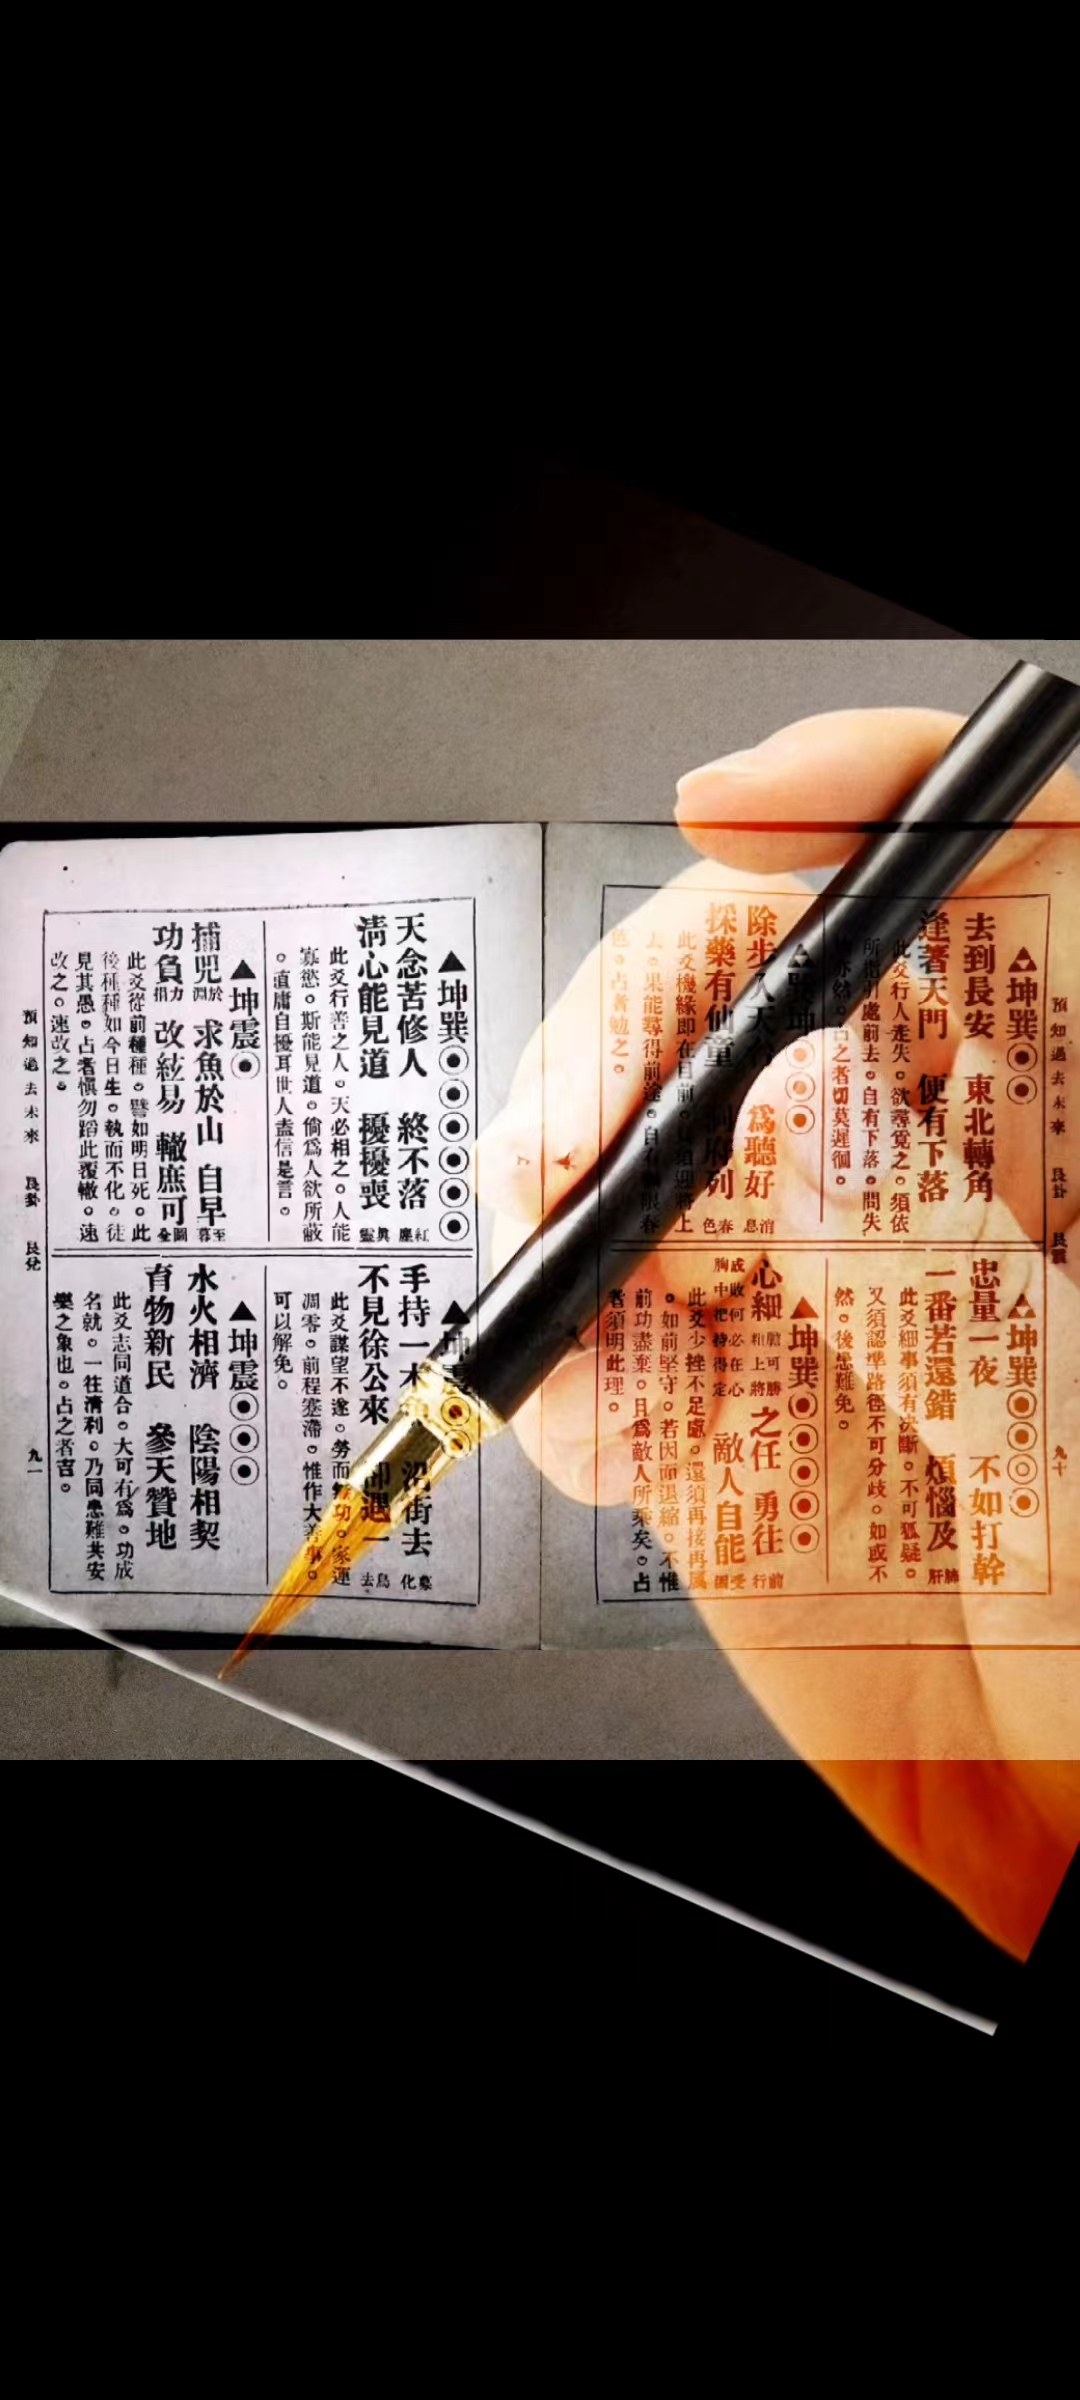 預知過去未來 艮卦 艮震 九十
坤巽
去到長安 東北轉角
逢著天門 便有下落
此爻行人走失。欲尋覓之。須依
所指引處前去。自有下落。問失
亦然。占之者切莫遲徊。
坤
除步入天 為聽好消息
採藥有仙童 列春色
此爻機緣即在目前。迎將上
去。果能尋得前途。自有限春
色。占者勉之。
坤巽
忠量一夜 不如打幹
一番若還錯 煩惱及肺肝
此爻細事須有決斷。不可狐疑。
又須認準路徑不可分歧。如或不
然。後患難免。
坤巽
心細膽可勝粗上將之任 勇往前行
成敗何必在心胸中把持得定 敵人自能受困
此爻少挫不足慮。還須再接再厲
。如前堅守。若因而退縮。不惟
前功盡棄。且為敵人所乘矣。占
者須明此理。
坤巽
天念苦修人 終不落紅塵
清心能見道 擾擾喪真靈
此爻行善之人。天必相之。人能
寡慾。斯能見道。倘為人欲所蔽
。直庸自擾耳世人盍信是言。
坤震
捕兕於淵 求魚於山 自早至暮
功負力捐 改絃易 轍庶可圖全
此爻從前種種。譬如明日死。此
後種種如今日生。執而不化。徒
見其愚。占者慎勿蹈此覆轍。速
改之。速改之。
坤震
手持一木魚 沿街去募化
不見徐公來 卻遇一鳥去
此爻謀望不遂。勞而無功。家運
凋零。前程蹇滯。惟作大善事。
可以解免。
坤震
水火相濟 陰陽相契
育物新民 參天贊地
此爻志同道合。大可有為。功成
名就。一往濟利。乃同患難共安
樂之象也。占之者吉。
預知過去未來 艮卦 艮兌 九一